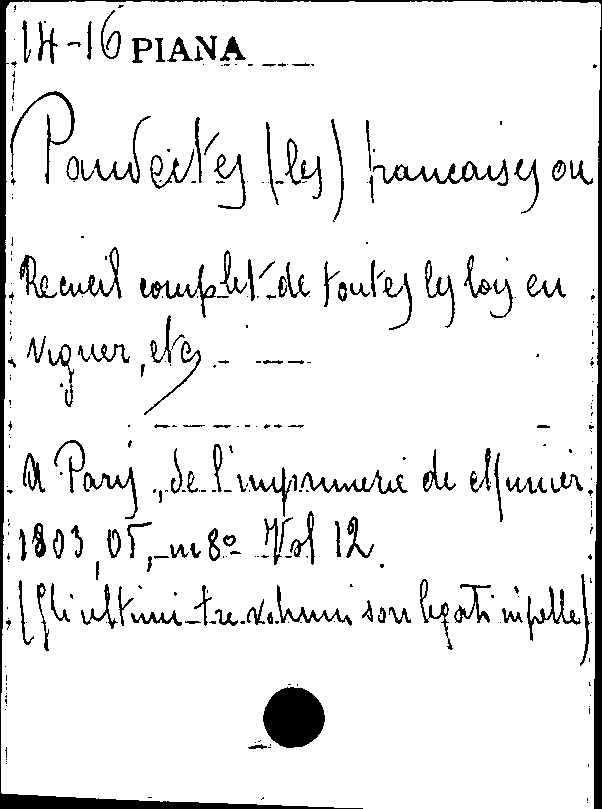 14-16 PIANA
Pandectes (les) francaises ou
Recueil complet de toutes les lois en
viguer, etc.
A Paris, de l'imprimerie de Munier.
1803, 05, in 8º Vol 12.
(Gli ultimi tre volumi son legati in pelle)